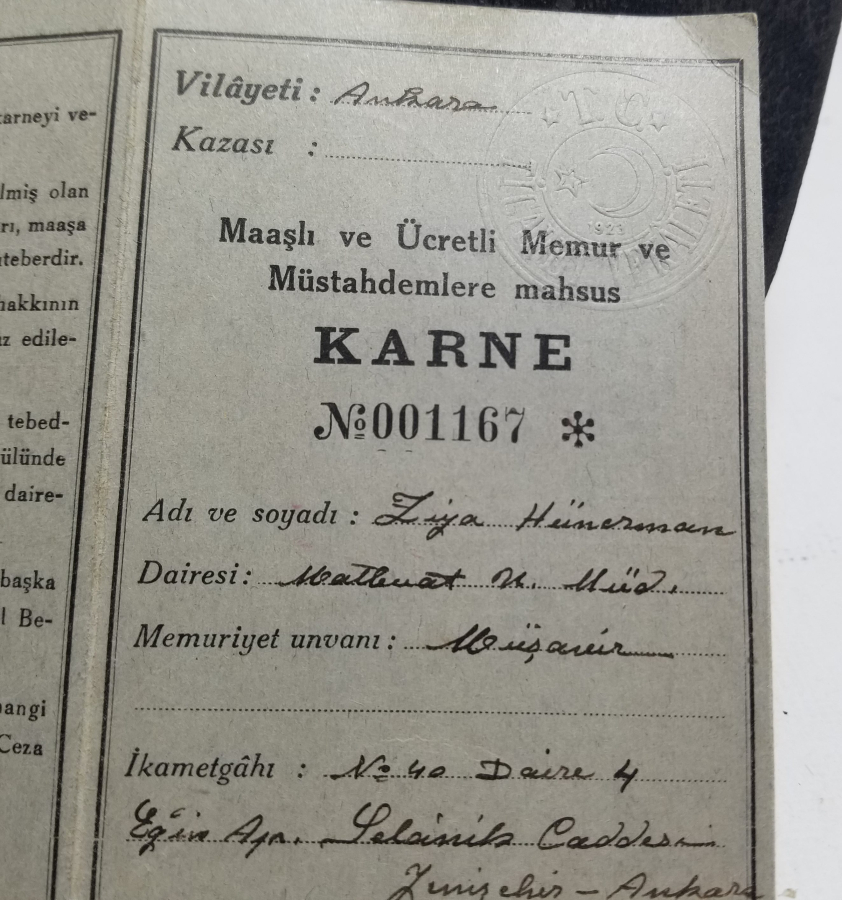 arneyi ve-
lmiş olan
rı, maaşa
teberdir.
hakkının
z edile-
tebed-
ülünde
daire-
başka
l Be-
angi
Ceza
Vilâyeti : Ankara
Kazası :
T.C.
TÜRKİYE HÜKÜMETİ
1923
Maaşlı ve Ücretli Memur ve
Müstahdemlere mahsus
KARNE
№ 001167 *
Adı ve soyadı : Ziya Hünerman
Dairesi : Matbuat U. Müd.
Memuriyet unvanı : Müşavir
İkametgâhı : № 40 Daire 4
Eğin Ap. Selânik Caddesi
Yenişehir – Ankara